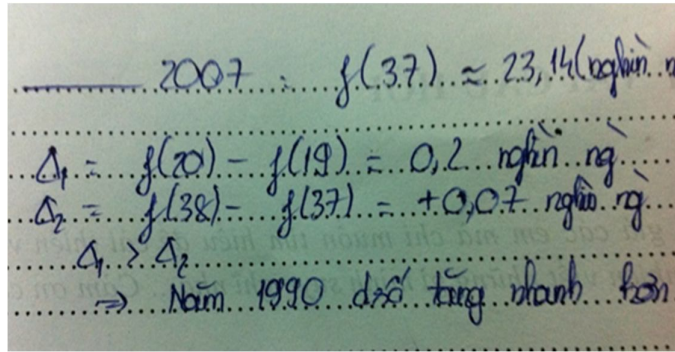 2007 : f(37) ≈ 23,14 (nghìn n
Δ₁ = f(20) - f(19) = 0,2 nghìn ng
Δ₂ = f(38) - f(37) = +0,07 nghìn ng
Δ₁ > Δ₂
⇒ Năm 1990 dsố tăng nhanh hơn